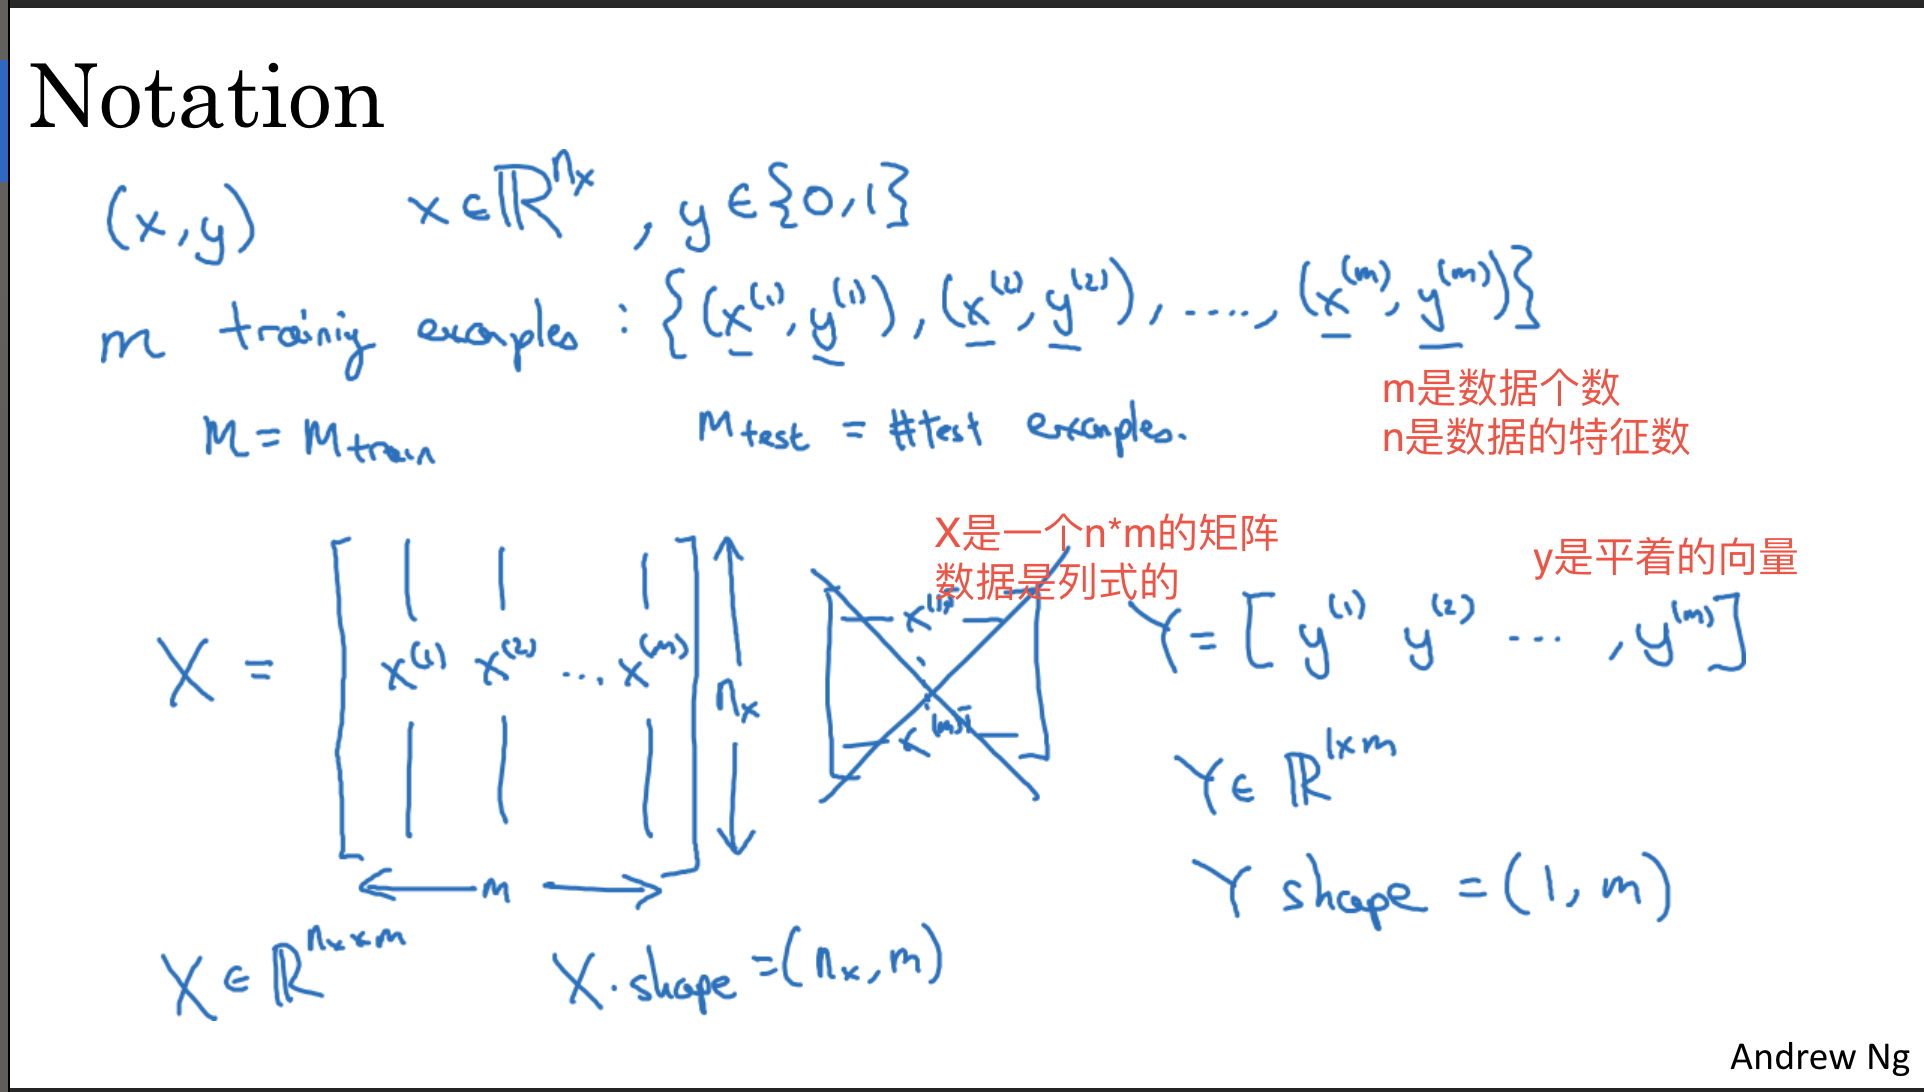 Notation
(x,y) x∈ℝ^{n_x}, y∈{0,1}
m training examples : {(x^{(1)}, y^{(1)}), (x^{(2)}, y^{(2)}), ...., (x^{(m)}, y^{(m)})}
m是数据个数
n是数据的特征数
M = M_{train} M_{test} = #test examples.
X是一个n*m的矩阵
数据是列式的
y是平着的向量
X = [x^{(1)} x^{(2)} ... x^{(m)}] n_x
m
x^{(1)T}
x^{(m)T}
Y = [y^{(1)} y^{(2)} ... , y^{(m)}]
Y∈ℝ^{1×m}
Y shape = (1, m)
X∈ℝ^{n_x×m} X.shape = (n_x, m)
Andrew Ng